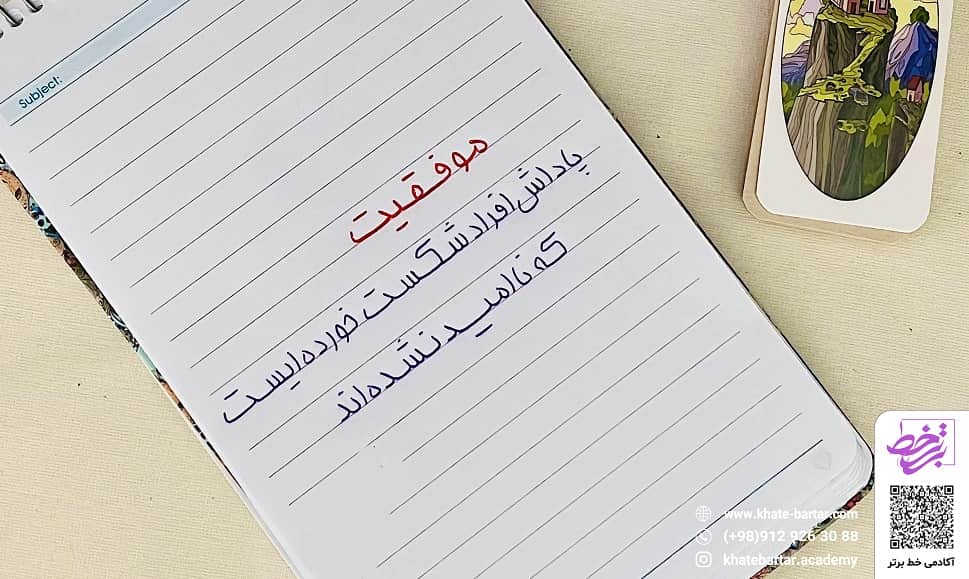 Subject:
موفقیت
پاداش افراد شکست خورده ایست
که نا امید نشده اند
خط برتر
www.khate-bartar.com
(+98)912 926 30 88
khatebartar.academy
آکادمی خط برتر